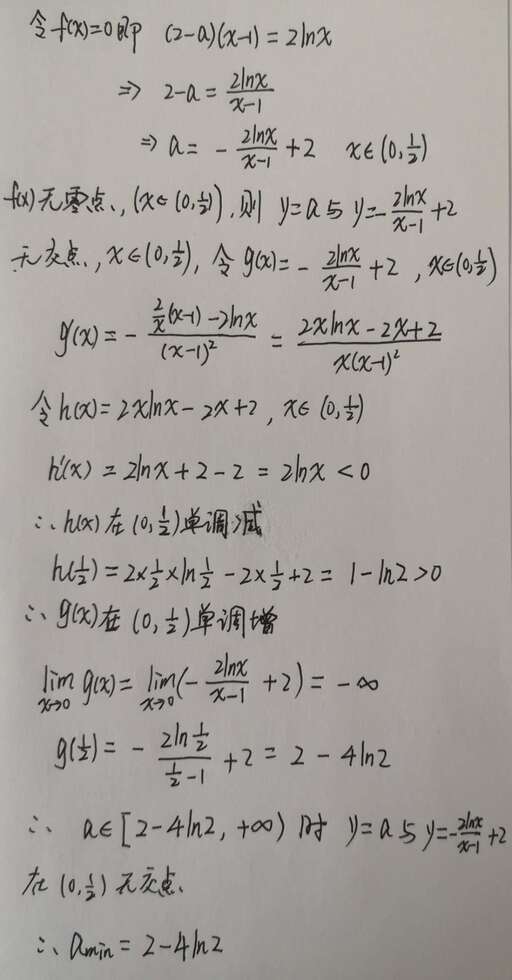 令 f(x)=0 即 (2-a)(x-1)=2lnx
⇒ 2-a = \frac{2lnx}{x-1}
⇒ a = - \frac{2lnx}{x-1} +2   x∈(0,\frac{1}{2})
f(x)无零点,(x∈(0,\frac{1}{2})),则 y=a 与 y=-\frac{2lnx}{x-1}+2
无交点,x∈(0,\frac{1}{2}),令 g(x)= - \frac{2lnx}{x-1} +2 ,x∈(0,\frac{1}{2})
g'(x)= - \frac{\frac{2}{x}(x-1)-2lnx}{(x-1)^2} = \frac{2xlnx-2x+2}{x(x-1)^2}
令 h(x)= 2xlnx-2x+2 , x∈(0,\frac{1}{2})
h'(x) = 2lnx+2-2 = 2lnx <0
∴ h(x) 在 (0,\frac{1}{2}) 单调减
h(\frac{1}{2}) = 2×\frac{1}{2}×ln\frac{1}{2} - 2×\frac{1}{2}+2 = 1-ln2>0
∴ g(x)在 (0,\frac{1}{2}) 单调增
\lim_{x→0} g(x)= \lim_{x→0}(- \frac{2lnx}{x-1} +2) = -∞
g(\frac{1}{2}) = - \frac{2ln\frac{1}{2}}{\frac{1}{2}-1} +2 = 2-4ln2
∴ a∈[2-4ln2,+∞) 时 y=a 与 y=-\frac{2lnx}{x-1}+2
在 (0,\frac{1}{2}) 无交点、
∴ a_{min} = 2-4ln2